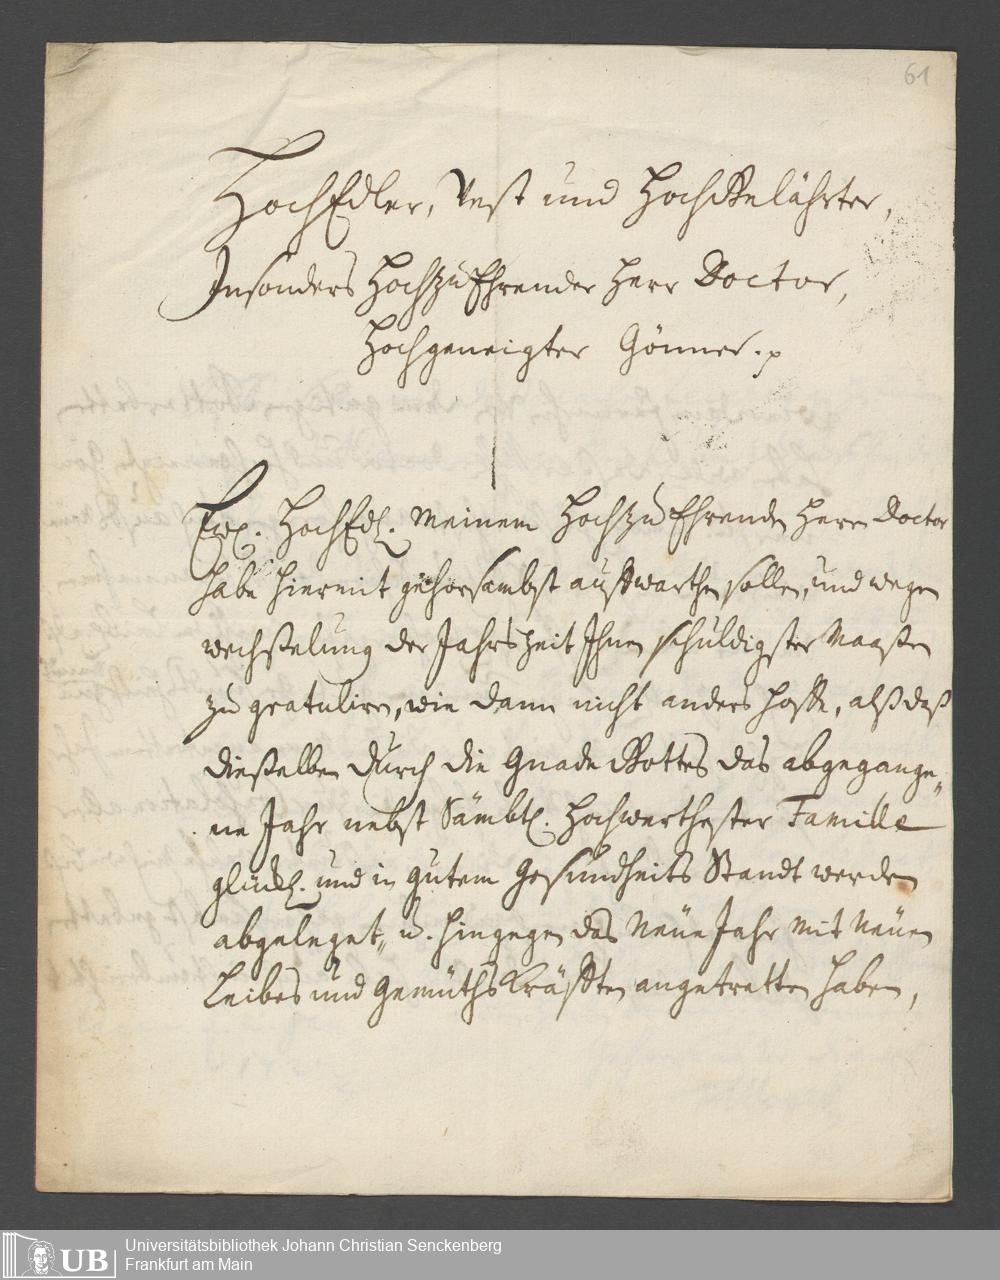 61
HochEdler, Vest und HochGelährter,
Insonders HochzuEhrender Herr Doctor,
Hochgeneigter Gönner.
Ew. HochEdl. Meinem HochzuEhrenden Herrn Doctor
habe hiermit gehorsambst auffwarthen sollen, und wegen
wechßelung der Jahrszeit Ihnen schuldigster Maaßen
zu gratuliren, wie dann nicht anders hoffe, alß daß
dießelben durch die Gnade Gottes das abgegange„
ne Jahr nebst Sämbtl. Hochwerthester Famille
glückl. und in gutem Gesundheits Standt werden
abgeleget, u. hingegen das Neue Jahr mit Neuen
Leibes und Gemüths Kräfften angetretten haben,
UB
Universitätsbibliothek Johann Christian Senckenberg
Frankfurt am Main